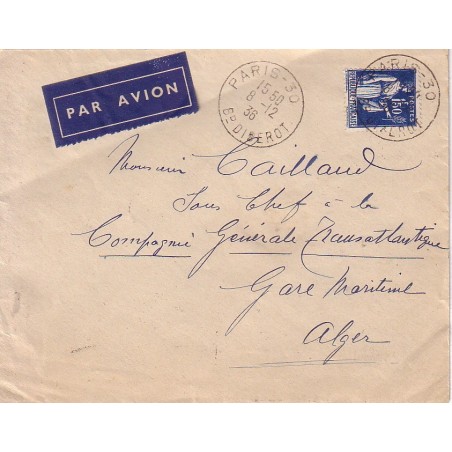 PAR AVION
PARIS-30
15 50
8 -12
36
Bd DIDEROT
PARIS-30
1F50
Monsieur Caillaud
Sous Chef à la
Compagnie Générale Transatlantique
Gare Maritime
Alger